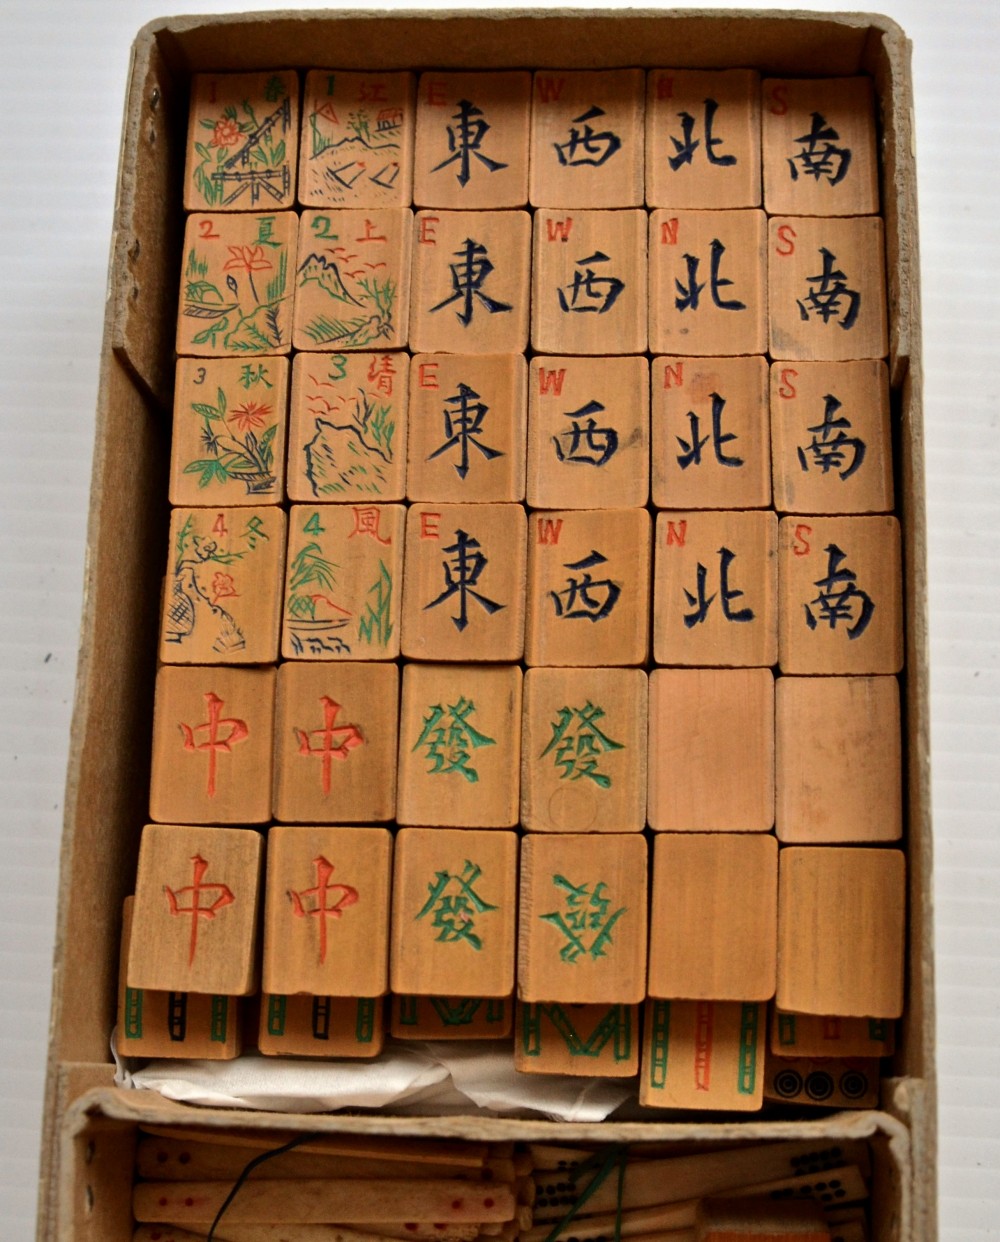 1 春 1 江 E 東 W 西 N 北 S 南
2 夏 2 上 E 東 W 西 N 北 S 南
3 秋 3 清 E 東 W 西 N 北 S 南
4 冬 4 風 E 東 W 西 N 北 S 南
中 中 發 發
中 中 發 發